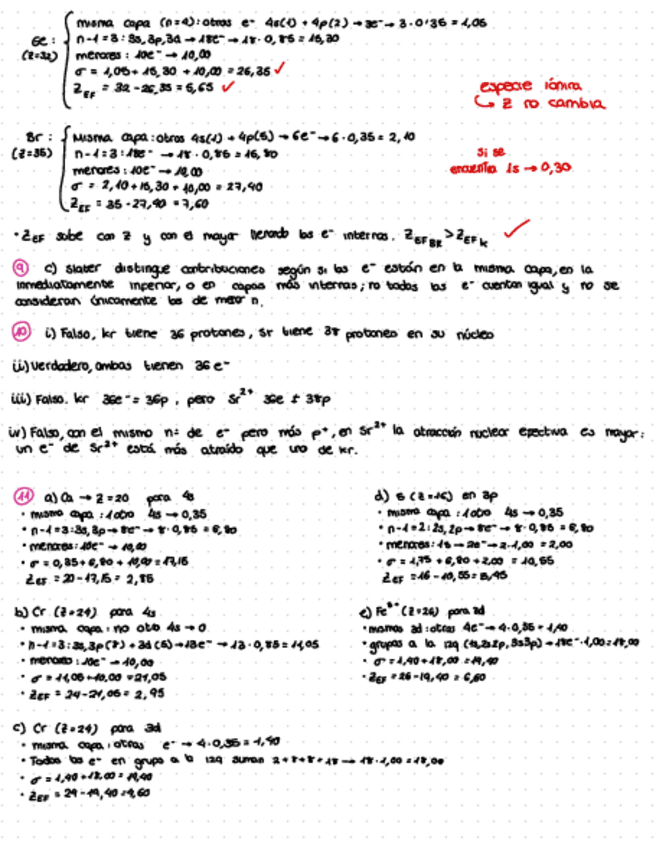 Ge: misma capa (n=4): otros e⁻ 4s(1) + 4p(2) → 3e⁻ → 3·0'35 = 1,05
(Z=32) n-1=3: 3s, 3p, 3d → 18e⁻ → 18·0,85 = 15,30
menores: 10e⁻ → 10,00
σ = 1,05 + 15,30 + 10,00 = 26,35 ✓
Z_EF = 32 - 26,35 = 5,65 ✓
especie iónica
↳ Z no cambia
Br: Misma capa: otros 4s(1) + 4p(5) → 6e⁻ → 6·0,35 = 2,10
(Z=35) n-1=3: 18e⁻ → 18·0,85 = 15,30
menores: 10e⁻ → 10,00
σ = 2,10 + 15,30 + 10,00 = 27,40
Z_EF = 35 - 27,40 = 7,60
si se
encuentra 1s → 0,30
• Z_EF sube con Z y con el mayor llenado los e⁻ internos. Z_EF Br > Z_EF K ✓
9 c) Slater distingue contribuciones según si los e⁻ están en la misma capa, en la
inmediatamente inferior, o en capas más internas; no todos los e⁻ cuentan igual y no se
consideran únicamente los de menor n.
10 i) Falso, Kr tiene 36 protones, Sr tiene 38 protones en su núcleo
ii) Verdadero, ambas tienen 36 e⁻
iii) Falso. Kr 36e⁻ = 36p, pero Sr²⁺ 36e ≠ 38p
iv) Falso, con el mismo nº de e⁻ pero más p⁺, en Sr²⁺ la atracción nuclear efectiva es mayor:
un e⁻ de Sr²⁺ está más atraído que uno de Kr.
11 a) Ca → Z=20 para 4s
• misma capa: 1 otro 4s → 0,35
• n-1=3: 3s, 3p → 8e⁻ → 8·0,85 = 6,80
• menores: 10e⁻ → 10,00
• σ = 0,35 + 6,80 + 10,00 = 17,15
Z_EF = 20 - 17,15 = 2,85
d) S (Z=16) en 3p
• misma capa: 1 otro 4s → 0,35
• n-1=2: 2s, 2p → 8e⁻ → 8·0,85 = 6,80
• menores: 1s → 2e⁻ → 2·1,00 = 2,00
• σ = 1,75 + 6,80 + 2,00 = 10,55
Z_EF = 16 - 10,55 = 5,45
b) Cr (Z=24) para 4s
• misma capa: no otro 4s → 0
• n-1=3: 3s, 3p(8) + 3d(5) → 13e⁻ → 13·0,85 = 11,05
• menores: 10e⁻ → 10,00
• σ = 11,05 + 10,00 = 21,05
• Z_EF = 24 - 21,05 = 2,95
e) Fe (Z=26) para 3d
• mismos 3d: otros 4e⁻ → 4·0,35 = 1,40
• grupos a la izq (1s, 2s2p, 3s3p) → 18e⁻·1,00 = 18,00
• σ = 1,40 + 18,00 = 19,40
• Z_EF = 26 - 19,40 = 6,60
c) Cr (Z=24) para 3d
• misma capa: otros e⁻ → 4·0,35 = 1,40
• Todos los e⁻ en grupo a la izq suman 2+8+8 = 18 → 18·1,00 = 18,00
• σ = 1,40 + 18,00 = 19,40
• Z_EF = 24 - 19,40 = 4,60